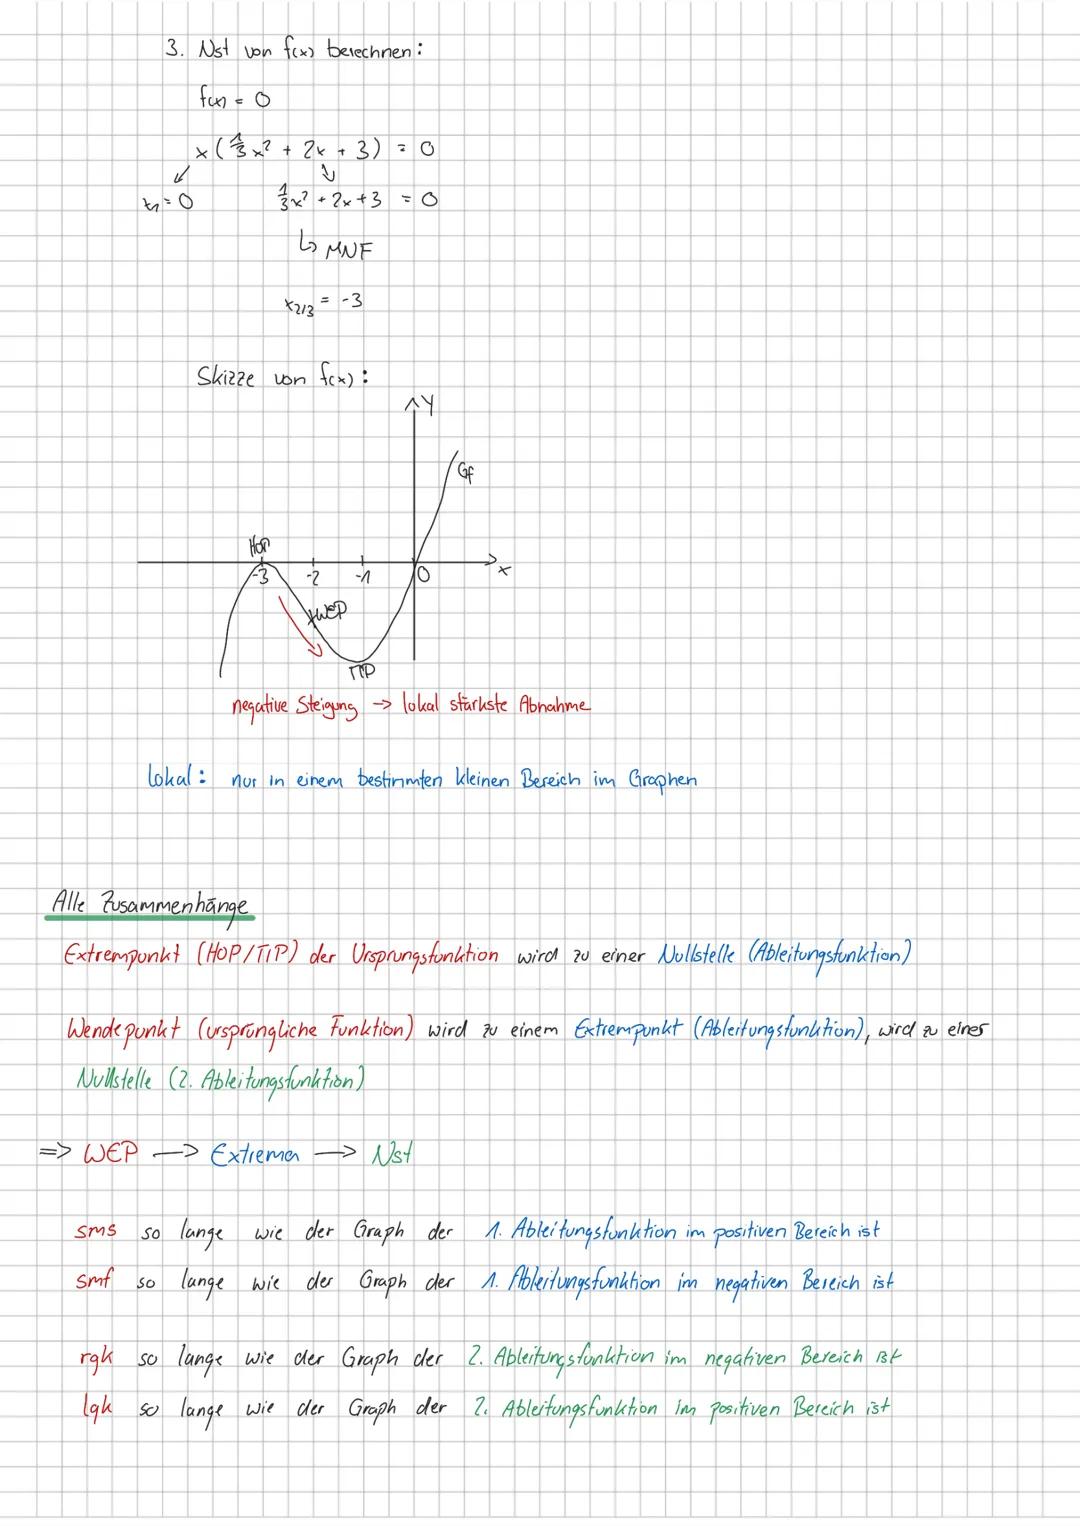 3. Nst von f(x) berechnen:
f(x) = 0
x (1/3 x² + 2x + 3) = 0
x₁ = 0 1/3 x² + 2x + 3 = 0
↳ MNF
x₂/₃ = -3
Skizze von f(x):
Y
Gf
HOP
-3 -2 -1 0 x
WEP
TIP
negative Steigung → lokal stärkste Abnahme
lokal: nur in einem bestimmten kleinen Bereich im Graphen
Alle Zusammenhänge
Extrempunkt (HOP/TIP) der Ursprungsfunktion wird zu einer Nullstelle (Ableitungsfunktion)
Wendepunkt (ursprüngliche Funktion) wird zu einem Extrempunkt (Ableitungsfunktion), wird zu einer
Nullstelle (2. Ableitungsfunktion)
=> WEP → Extrema → Nst
sms so lange wie der Graph der 1. Ableitungsfunktion im positiven Bereich ist
smf so lange wie der Graph der 1. Ableitungsfunktion im negativen Bereich ist
rgk so lange wie der Graph der 2. Ableitungsfunktion im negativen Bereich ist
lgk so lange wie der Graph der 2. Ableitungsfunktion im positiven Bereich ist